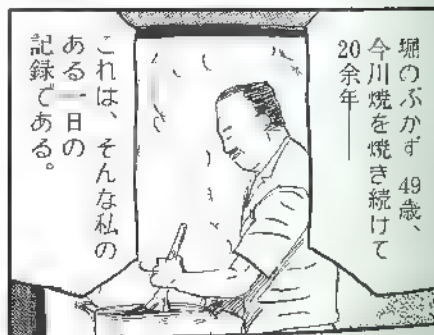 堀のぶかず 49歳、
今川焼を焼き続けて
20余年──
これは、そんな私の
ある一日の
記録である。